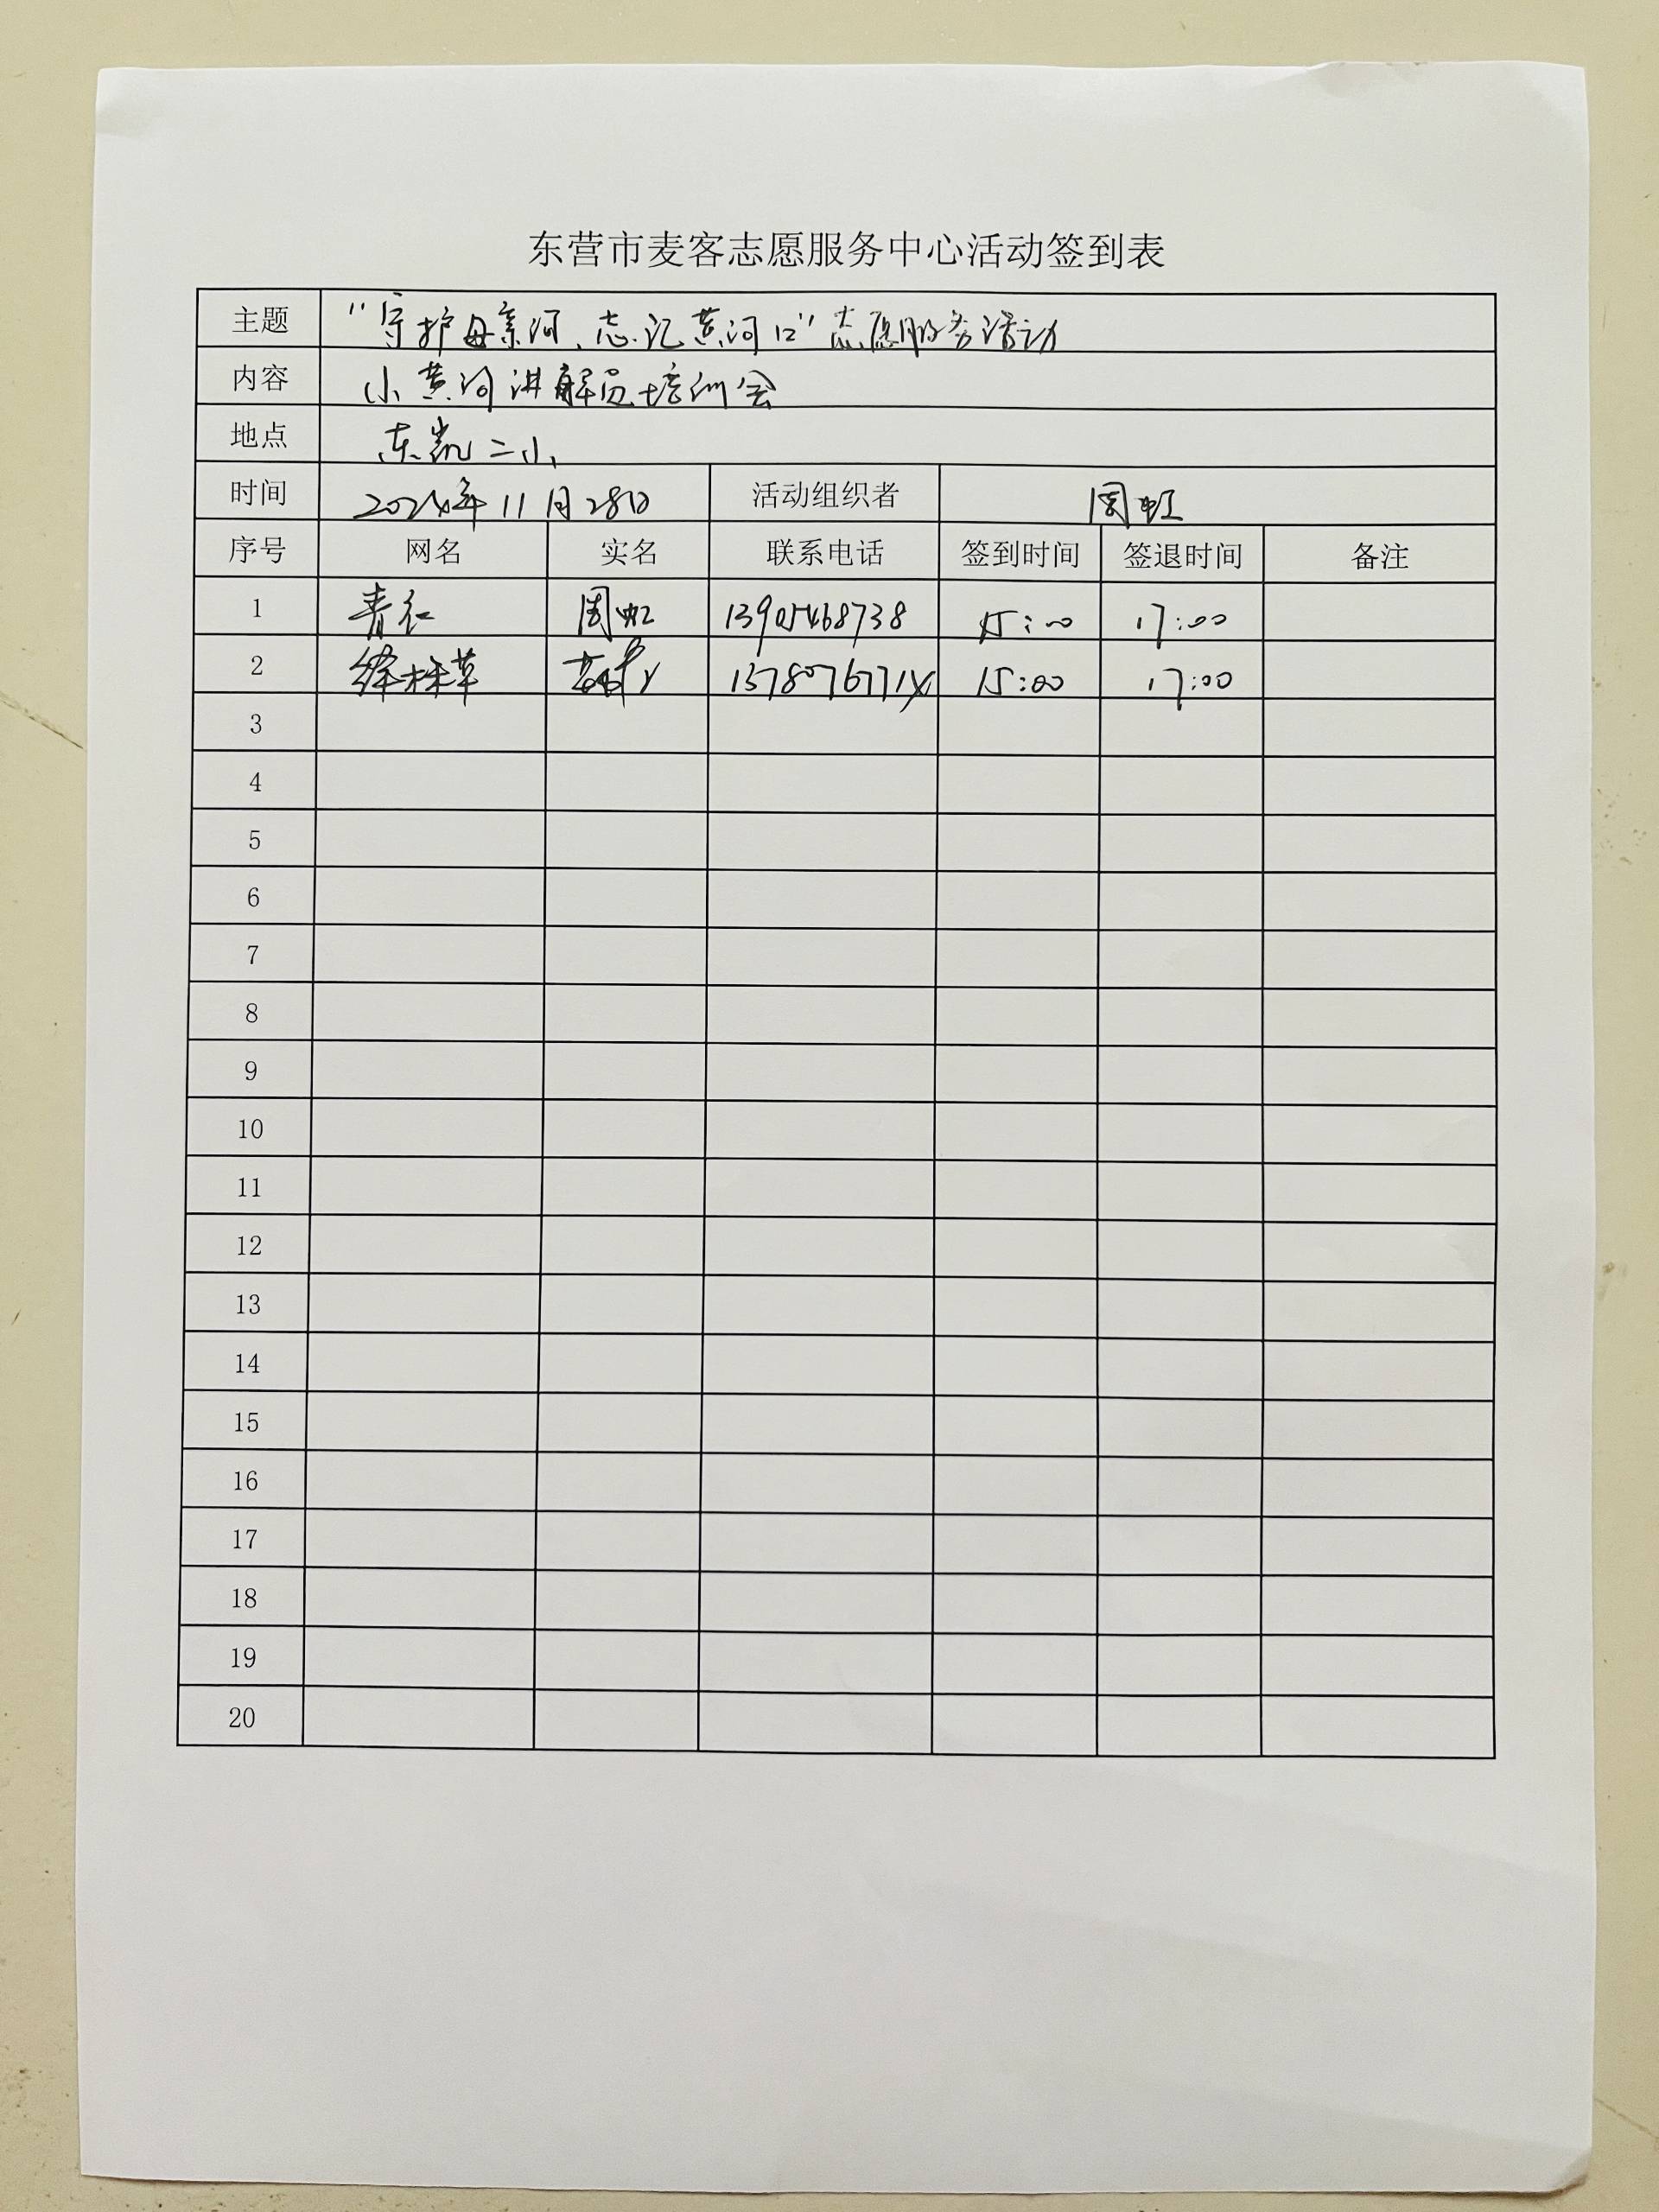 东营市麦客志愿服务中心活动签到表
主题 "守护母亲河、志记黄河口"志愿服务活动
内容 小黄河讲解员培训会
地点 东凯二小
时间 2024年11月28日 活动组织者 周虹
序号 网名 实名 联系电话 签到时间 签退时间 备注
1 青红 周虹 13905468738 15:00 17:00
2 绛株草 15:00 17:00
3
4
5
6
7
8
9
10
11
12
13
14
15
16
17
18
19
20